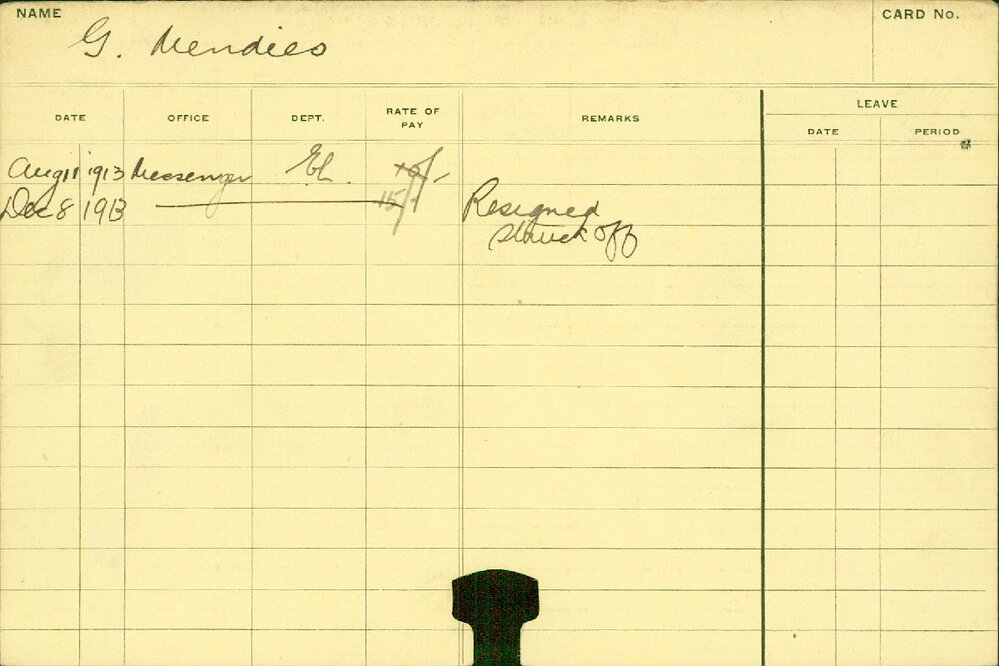 NAME
G. Mendies
CARD No.
LEAVE
DATE OFFICE DEPT. RATE OF PAY REMARKS DATE PERIOD
Aug 11 1913 Messenger El. 10/-
Dec 8 1913 15/- Resigned
Struck off